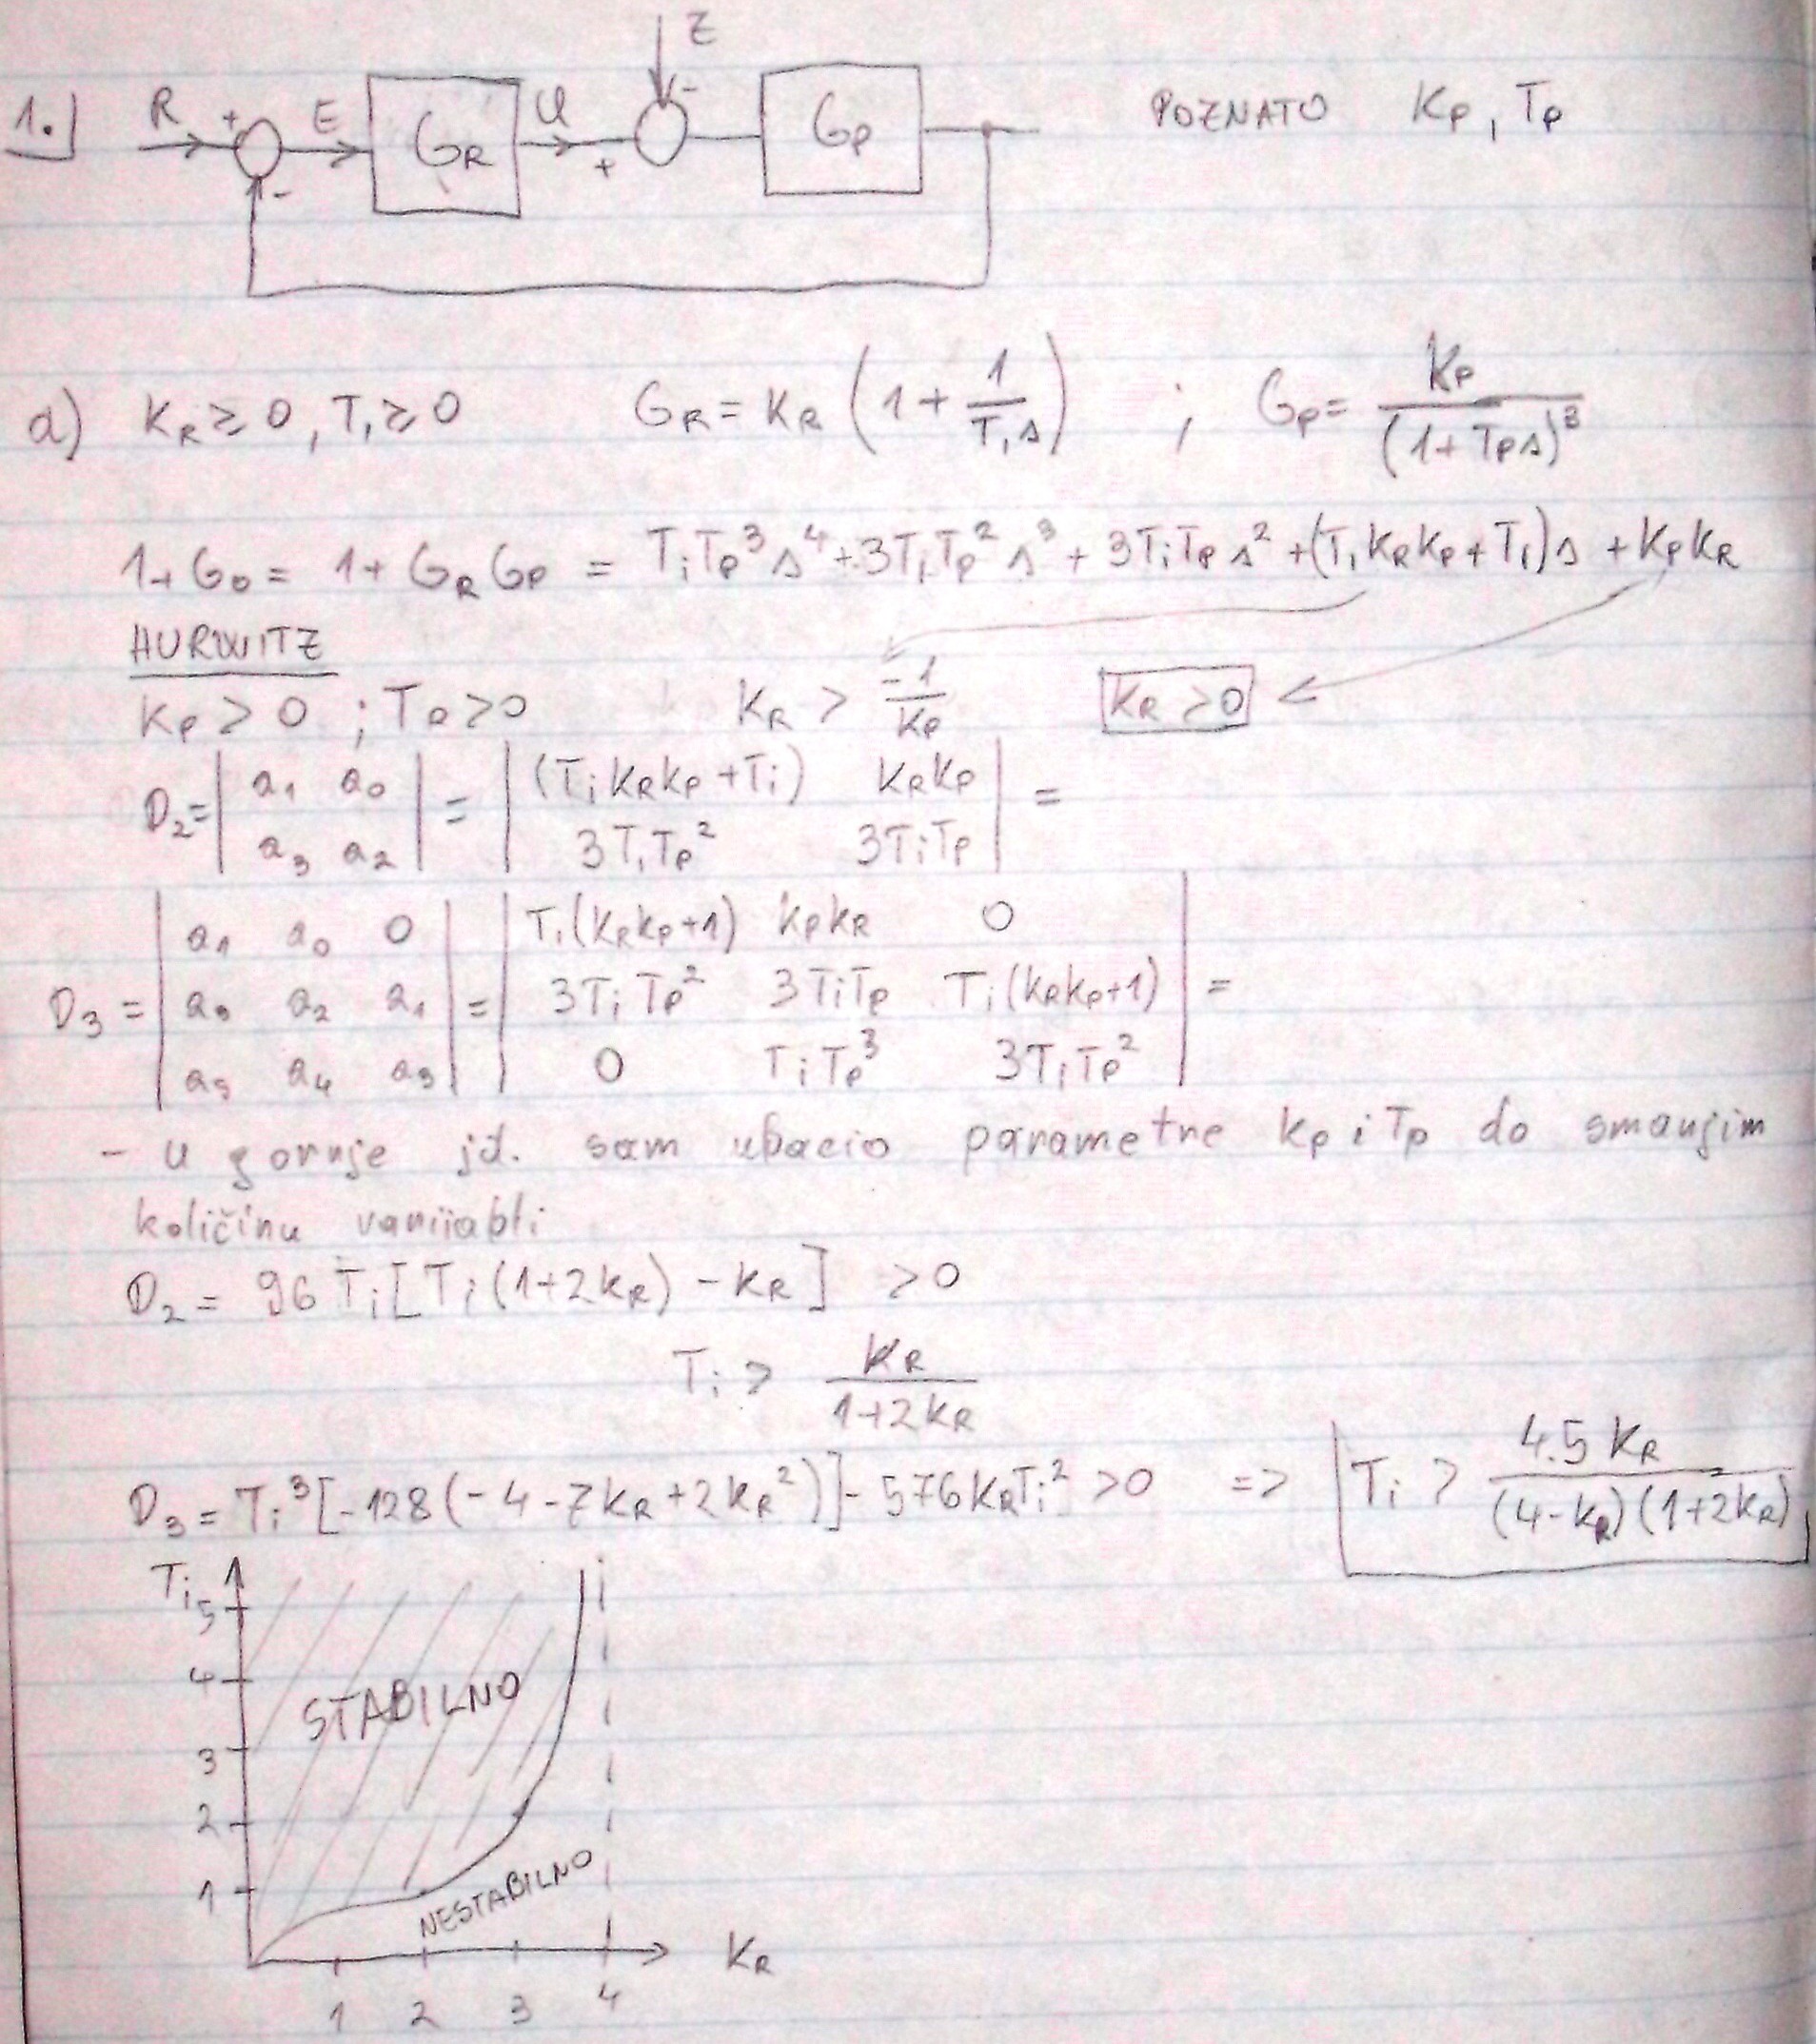 1.) R + E G_R U + Z - G_P POZNATO K_P, T_P
-
a) K_R ≥ 0, T_i ≥ 0 G_R = K_R (1 + 1/(T_i s)) ; G_P = K_P/(1+T_P s)^3
1+G_0 = 1+G_R G_P = T_i T_P^3 s^4 + 3T_i T_P^2 s^3 + 3T_i T_P s^2 + (T_i K_R K_P + T_i)s + K_P K_R
HURWITZ
K_P > 0 ; T_P > 0 K_R > -1/K_P K_R > 0
D_2 = | a_1 a_0 | = | (T_i K_R K_P + T_i) K_R K_P | =
| a_3 a_2 | | 3T_i T_P^2 3T_i T_P |
| a_1 a_0 0 | | T_i(K_R K_P+1) K_P K_R 0 |
D_3 = | a_3 a_2 a_1 | = | 3T_i T_P^2 3T_i T_P T_i(K_R K_P+1) | =
| a_5 a_4 a_3 | | 0 T_i T_P^3 3T_i T_P^2 |
- u gornje jd. sam ubacio parametre K_P i T_P do smanjim
količinu varijabli
D_2 = 96 T_i [T_i (1+2K_R) - K_R] > 0
T_i > K_R/(1+2K_R)
D_3 = T_i^3 [-128(-4-7K_R+2K_R^2)] - 576K_R T_i^2 > 0 => T_i > 4.5 K_R/((4-K_R)(1+2K_R))
T_i
5
4
STABILNO
3
2
1
NESTABILNO
K_R
1 2 3 4